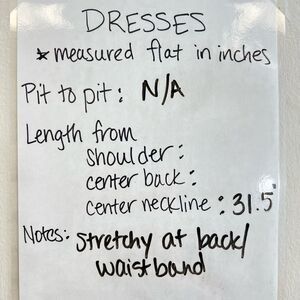 DRESSES
* measured flat in inches
Pit to pit: N/A
Length from
shoulder:
center back:
center neckline: 31.5"
Notes: stretchy at back/
waistband